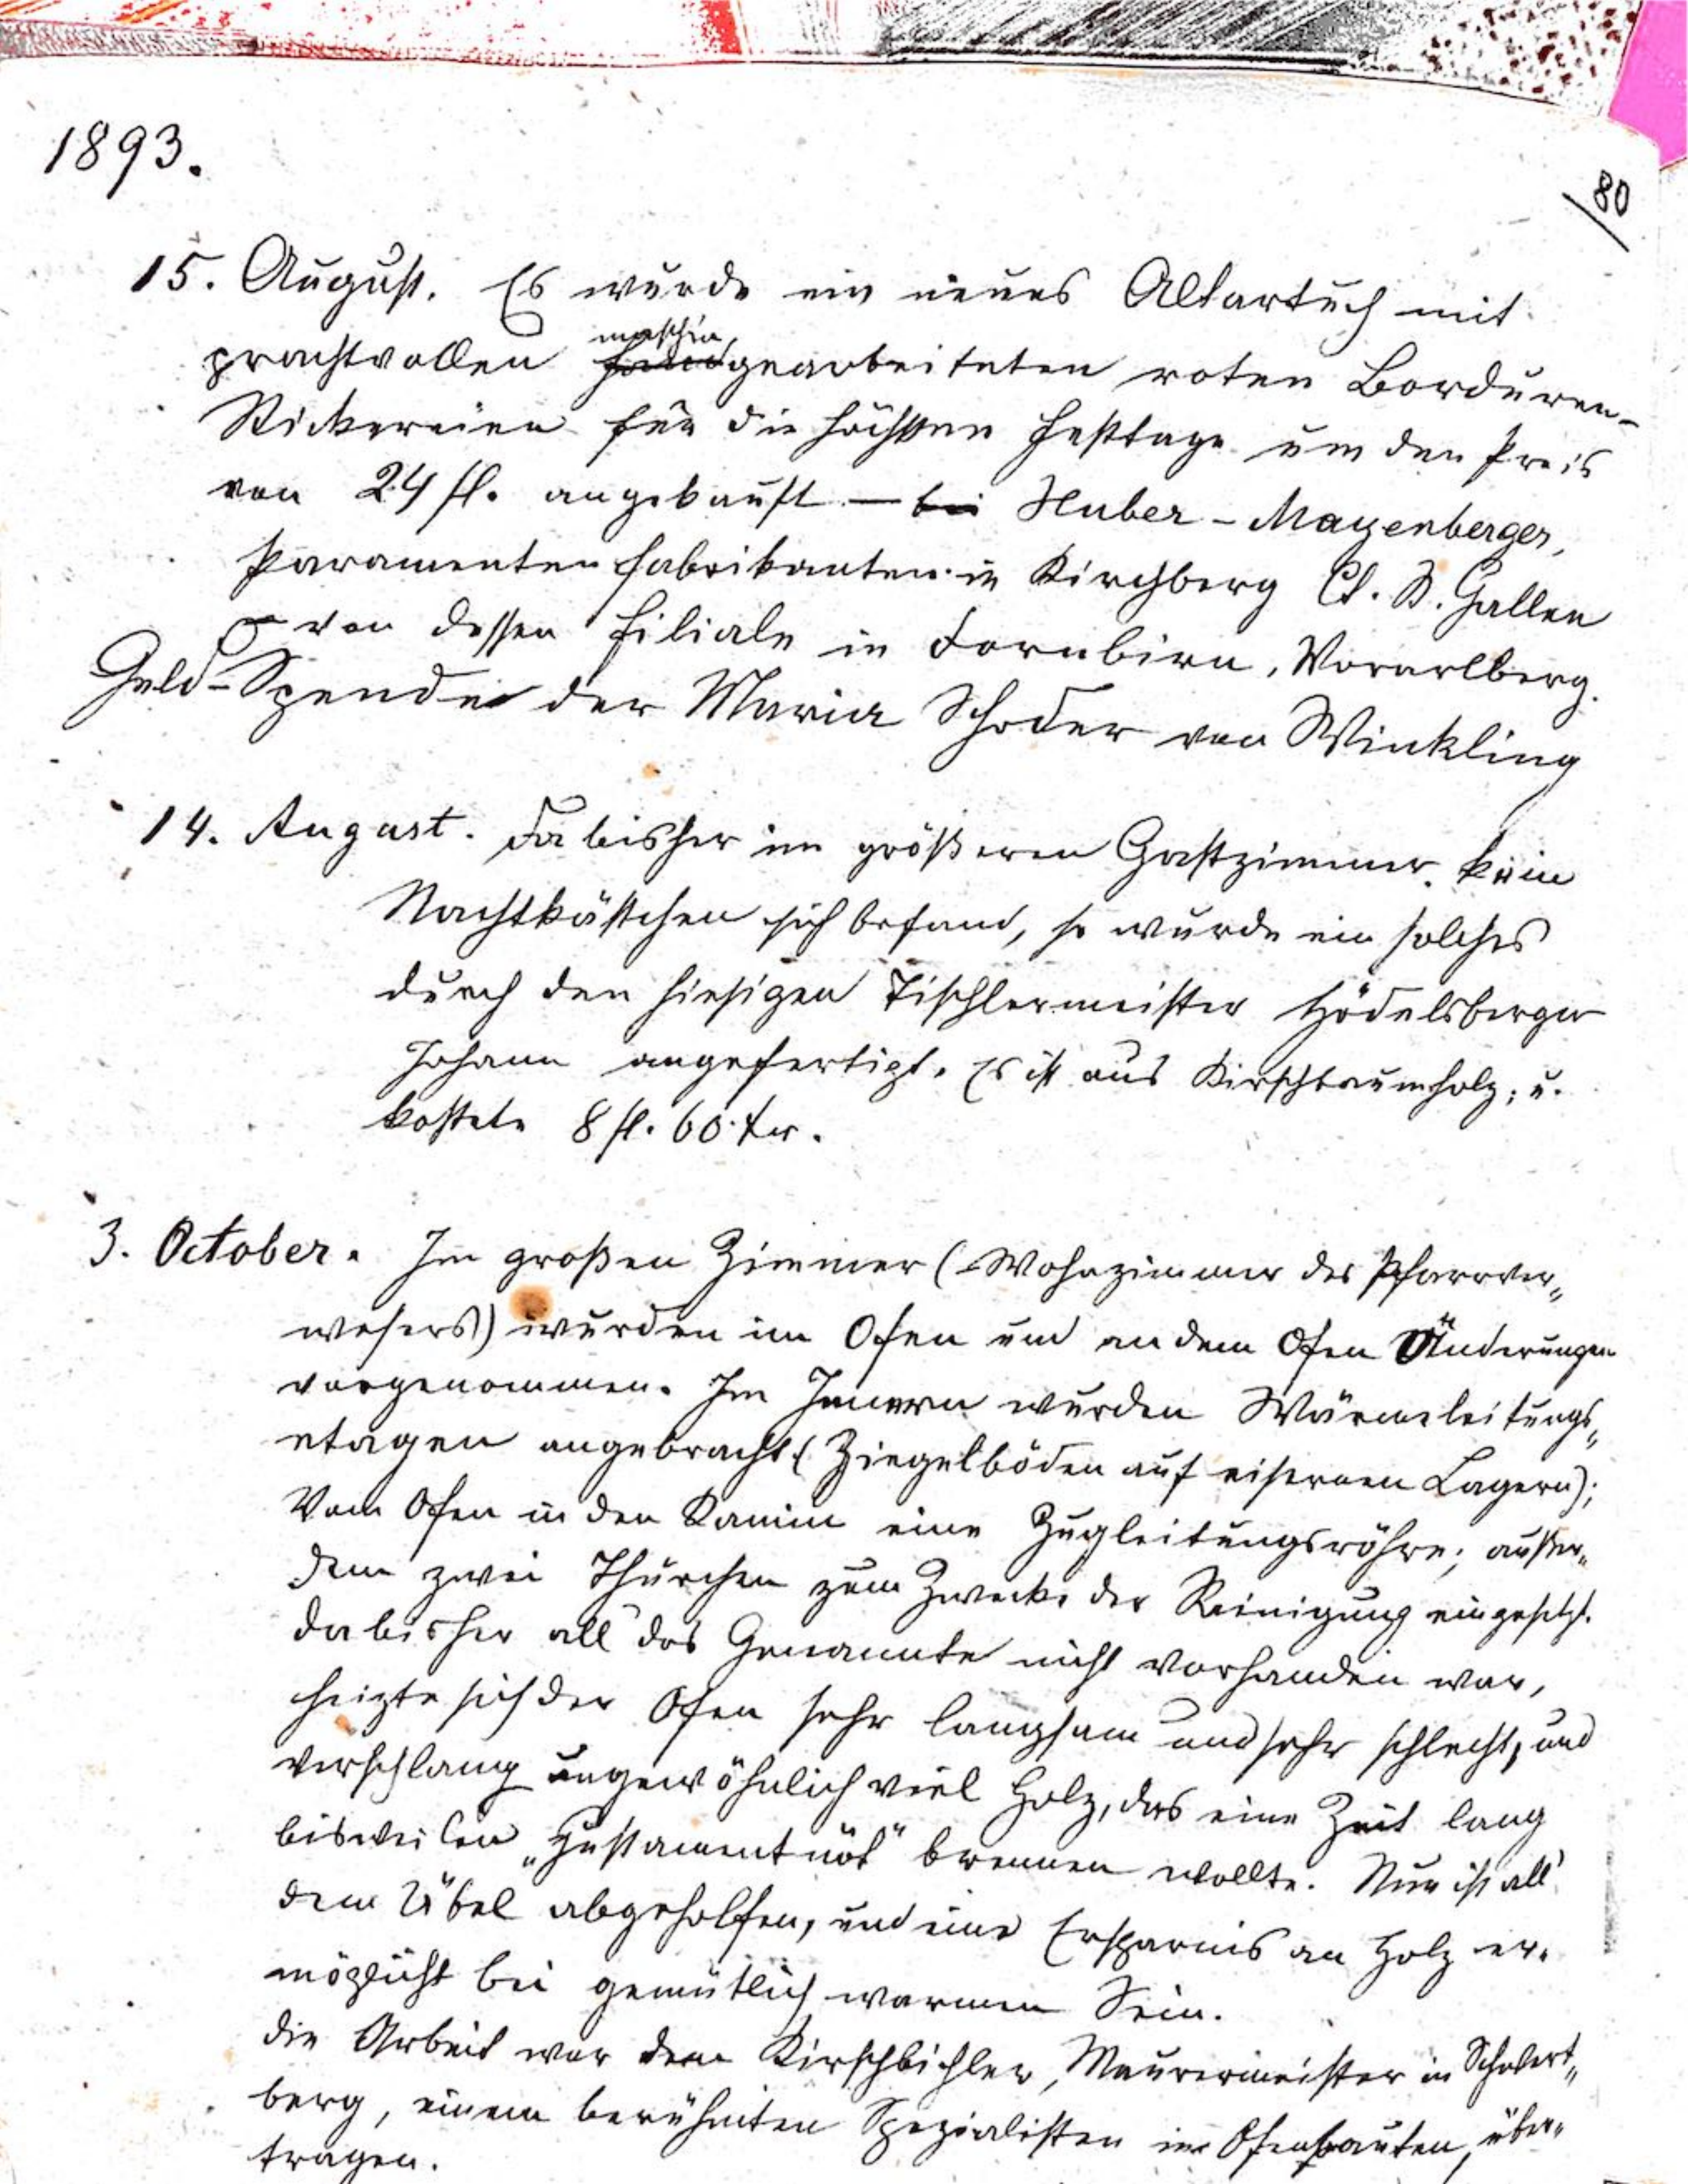 1893.
80
15. August. Es wurde ein neues Altartuch mit
prachtvollen maschin„gearbeiteten roten Borduren-
Stickereien für die höchsten Festtage um den Preis
von 24 fl. angekauft — bei Huber-Mayenberger,
Paramentenfabrikanten in Kirchberg Ct. St. Gallen
von dessen Filiale in Dornbirn, Vorarlberg.
Geld-Spende der Maria Schoder von Winkling
14. August. Da bisher im größeren Gastzimmer kein
Nachtkästchen sich befand, so wurde ein solches
durch den hiesigen Tischlermeister Hödelsberger
Johann angefertigt. Es ist aus Kirschbaumholz; u.
kostete 8 fl. 60 kr.
3. October. Im großen Zimmer (Wohnzimmer des Pfarrver„
wesers) wurden im Ofen und an dem Ofen Änderungen
vorgenommen. Im Innern wurden Wärmeleitungs„
etagen angebracht (Ziegelböden auf eisernen Lagern);
Vom Ofen in den Kamin eine Zugleitungsröhre; außer„
dem zwei Thürchen zum Zwecke der Reinigung eingesetzt.
Da bisher all das Genannte nicht vorhanden war,
heizte sich der Ofen sehr langsam und sehr schlecht, und
verschlang ungewöhnlich viel Holz, das eine Zeit lang
bisweilen brennen wollte. Nun ist all'
dem Übel abgeholfen, und eine Ersparnis an Holz er„
möglicht bei gemütlich warmen Sein.
Die Arbeit war dem Kirschbichler, Maurermeister in Schwert„
berg, einem berühmten Spezialisten in Ofenbauten, über„
tragen.